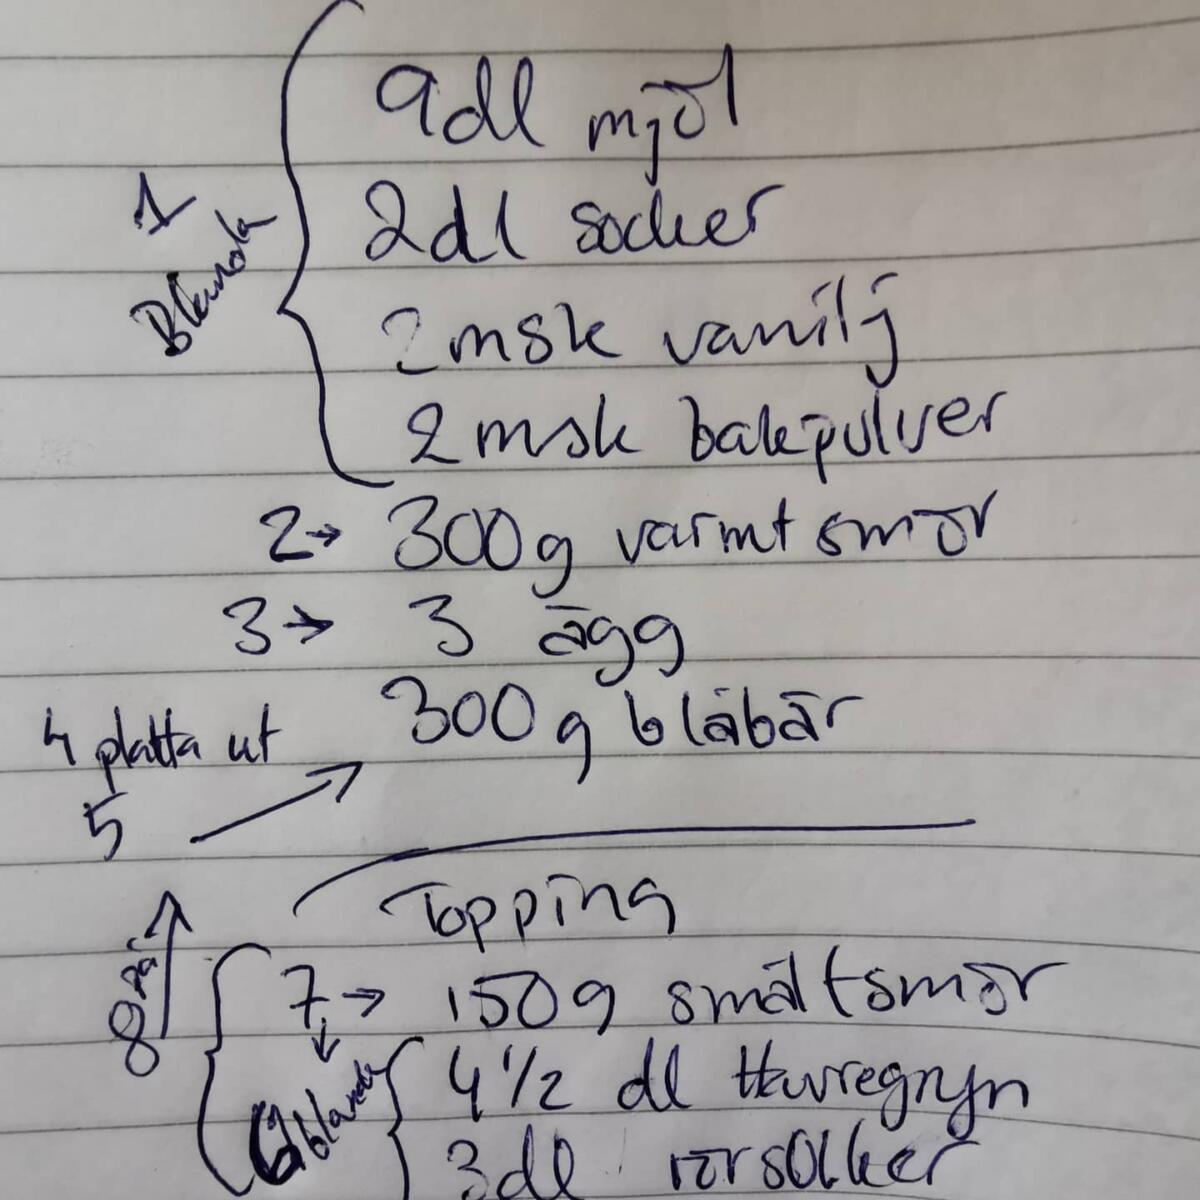 9dl mjöl
1 Blanda
2dl socker
2msk vanilj
2msk bakpulver
2→ 300g varmt smör
3→ 3 ägg
4 platta ut
300g blåbär
5
Topping
8 på
7→ 150g smält smör
6 blanda
4 1/2 dl Havregryn
3dl rörsocker